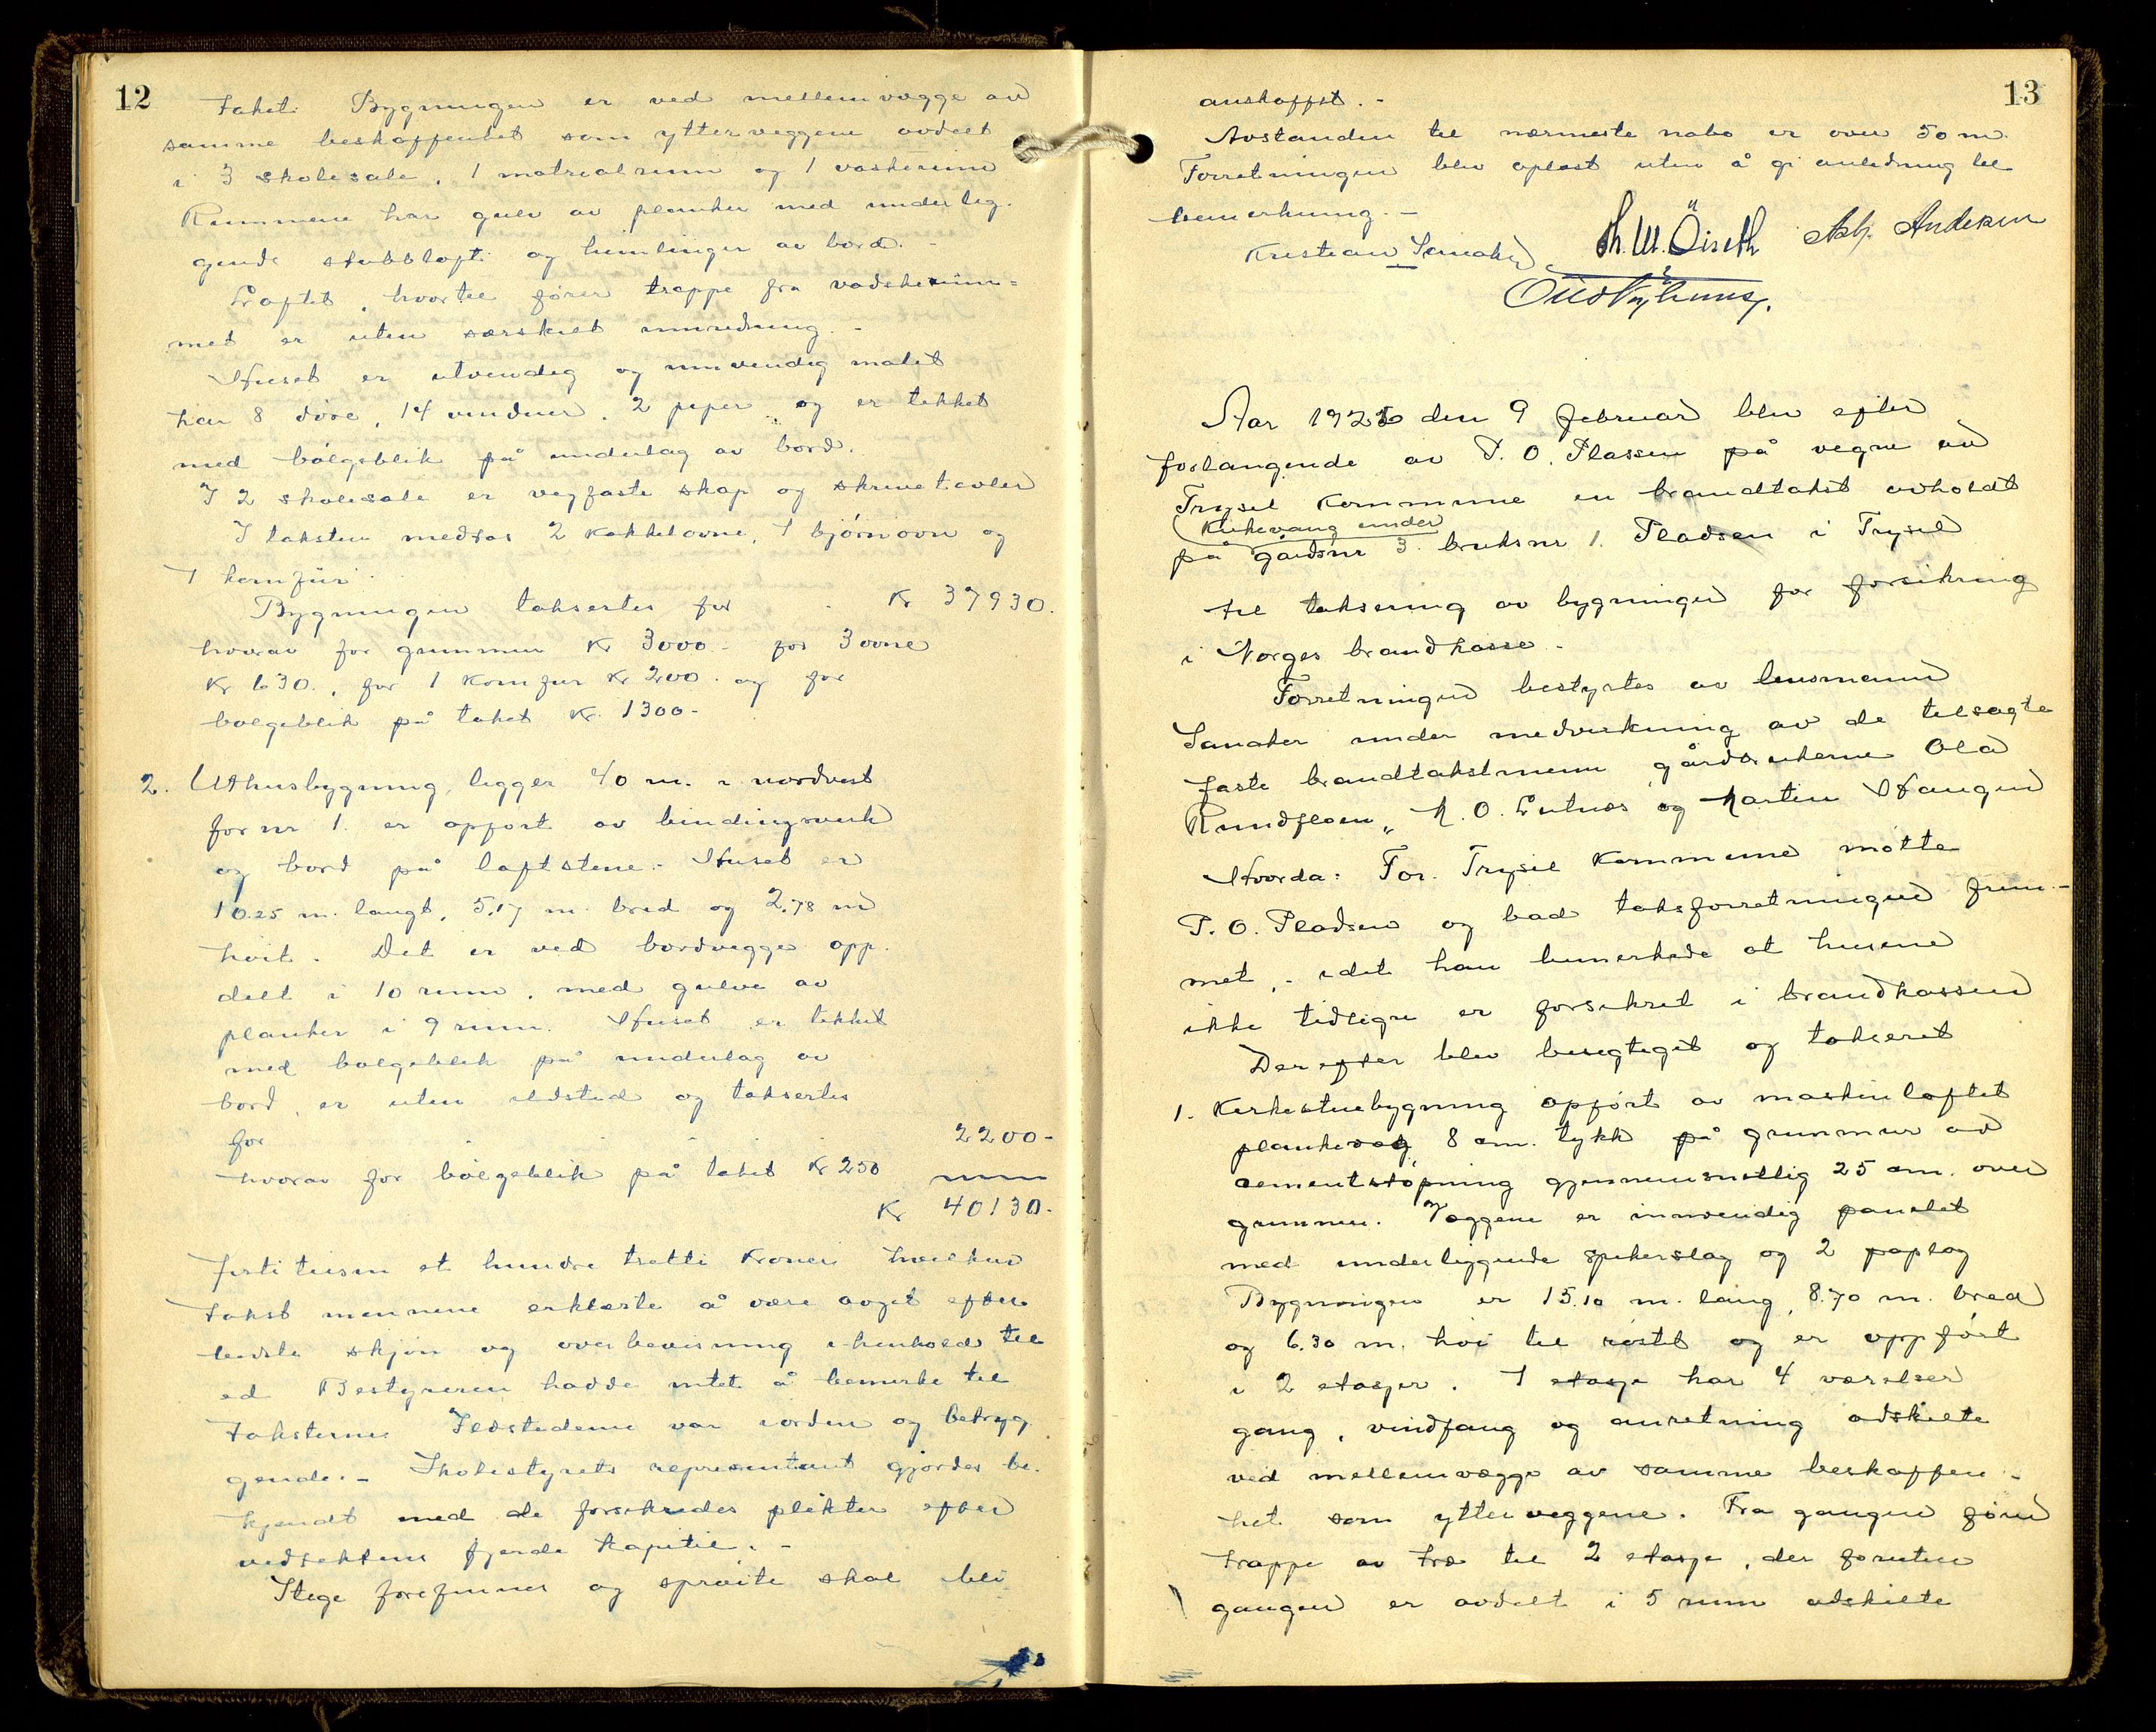 12
taket. Bygningen er ved mellemvægge av
samme beskaffenhet som yttervæggene avdelt
i 3 skolesale, 1 matrealrum og 1 vaskerum
Rummene har gulv av planker med underlig-
gende stubbloft og himlinger av bord. -
Loftet, hvortil fører trappe fra vaskerum=
met er uten særskilt innredning. -
Huset er utvendig og innvendig malet
har 8 døre, 14 vinduer, 2 piper og er tekket
med bølgeblik på underlag av bord.
I 2 skolesale er vegfaste skap og skrivetavler
I taksten medtas 2 kakkelovne, 1 bjørnovn og
1 komfur.
Bygningen takseres for Kr 37930.
hvorav for grunmur Kr 3000.- for 3 ovne
Kr 630., for 1 komfur Kr 200. og for
bølgeblik på taket Kr. 1300-
2. Uthusbygning, ligger 40 m. i nordvest
for nr 1. er opført av bindingsverk
og bord på løftstene.- Huset er
10.25 m. langt, 5,17 m. bred og 2,78 m
høit. Det er ved bordvegger opp-
delt i 10 rum, med gulve av
planker i 9 rum. Huset er tekket
med bølgeblik på underlag av
bord, er uten ildsted og takseres
for 2200-
hvorav for bølgeblik på taket Kr 250
Kr 40130.
førti tusen et hundre tretti kroner hvilken
takst mennene erklærte å være avgit efter
bedste skjøn og overbevisning i henhold til
ed Bestyreren hadde intet å bemerke til
taksterne. Ildstedene var i orden og betryg
gende.- Skolestyrets representant gjordes be-
kjendt med de forsikredes plikter efter
vedtektene fjerde kapitel. -
Stige forefinnes og sprøite skal bli
13
anskaffet. -
Avstanden til nærmeste nabo er over 50 m.
Forretningen blev oplæst uten å gi anledning til
bemerkning. -
Kristian Sanaker Th. M. Öiseth Asbj. Andersen
Otto Nyhuus.
Aar 1926 den 9 februar blev efter
forlangende av P. O. Plassen på vegne av
Trysil Kommune en brandtakst avholdt
Kirkevang under
på gårdsnr 3. bruksnr 1. Pladsen i Trysil
til taksering av bygninger for forsikring
i Norges brandkasse. -
Forretningen bestyrtes av lensmann
Sanaker under medvirkning av de tilsagte
faste brandtakstmenn gårdbrukerne Ola
Rundfloen, M. O. Lutnæs og Martin Haugen
Hvorda: For Trysil Kommune møtte
P. O. Pladsen og bad taksforretningen frem-
met, - idet han bemerkede at husene
ikke tidligre er forsikret i brandkassen
Derefter blev besigtiget og takseret
1. Kirkestuebygning opført av maskinlaftet
plankeveg, 8 cm. tykk på grunmur av
cementstøpning gjennemsnitlig 25 cm. over
grunnen. Væggene er innvendig panelet
med underliggende spikerslag og 2 paplag
Bygningen er 15.10 m. lang, 8.70 m. bred
og 6.30 m. høi til røstet og er oppført
i 2 etasjer. 1 etasje har 4 værelser
gang, vindfang og anretning adskilte
ved mellemvægge av samme beskaffen-
het som ytterveggene. Fra gangen fører
trappe av træ til 2 etasje, der foruten
gangen er avdelt i 5 rum adskilte